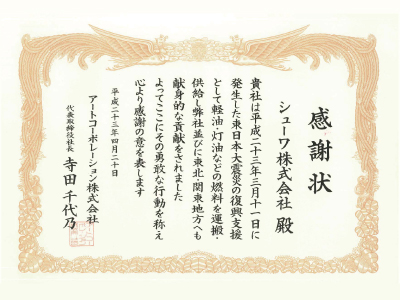 感謝状
シューワ株式会社 殿
貴社は平成二十三年三月十一日に
発生した東日本大震災の復興支援
として軽油・灯油などの燃料を運搬・
供給し弊社並びに東北・関東地方へも
献身的な貢献をされました
よってここにその勇敢な行動を称え
心より感謝の意を表します
平成二十三年四月二十日
アートコーポレーション株式会社
代表取締役社長 寺田千代乃